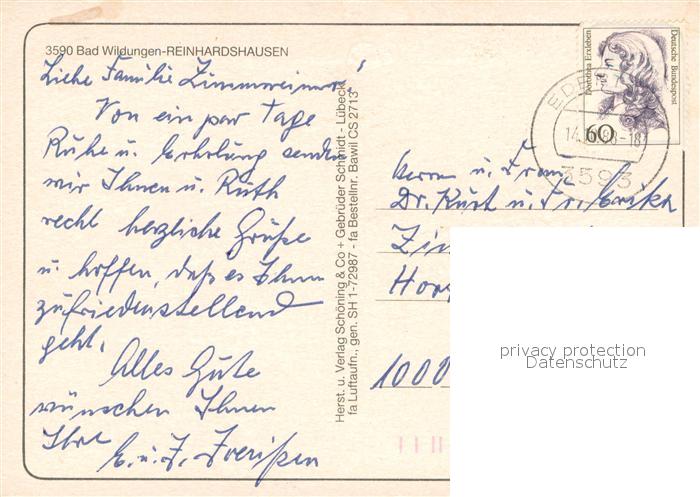 3590 Bad Wildungen-REINHARDSHAUSEN
Liebe Familie
Von ein par Tage
Ruhe u. Erholung senden
wir Ihnen u. Ruth
recht herzliche Grüße
u. hoffen, daß es Ihnen
zufriedenstellend
geht.
Alles Gute
wünschen Ihnen
Ihre
E. u. J.
Herst. u. Verlag Schöning & Co + Gebrüder Schmidt - Lübeck
fa Luftaufn., gen. SH 1-72987 - fa Bestellnr. Bawil CS 2713
Dorothea Erxleben
Deutsche Bundespost
60
EDER
3593
Herrn u. Frau
Dr. Kurt u. Fr.
1000
privacy protection
Datenschutz